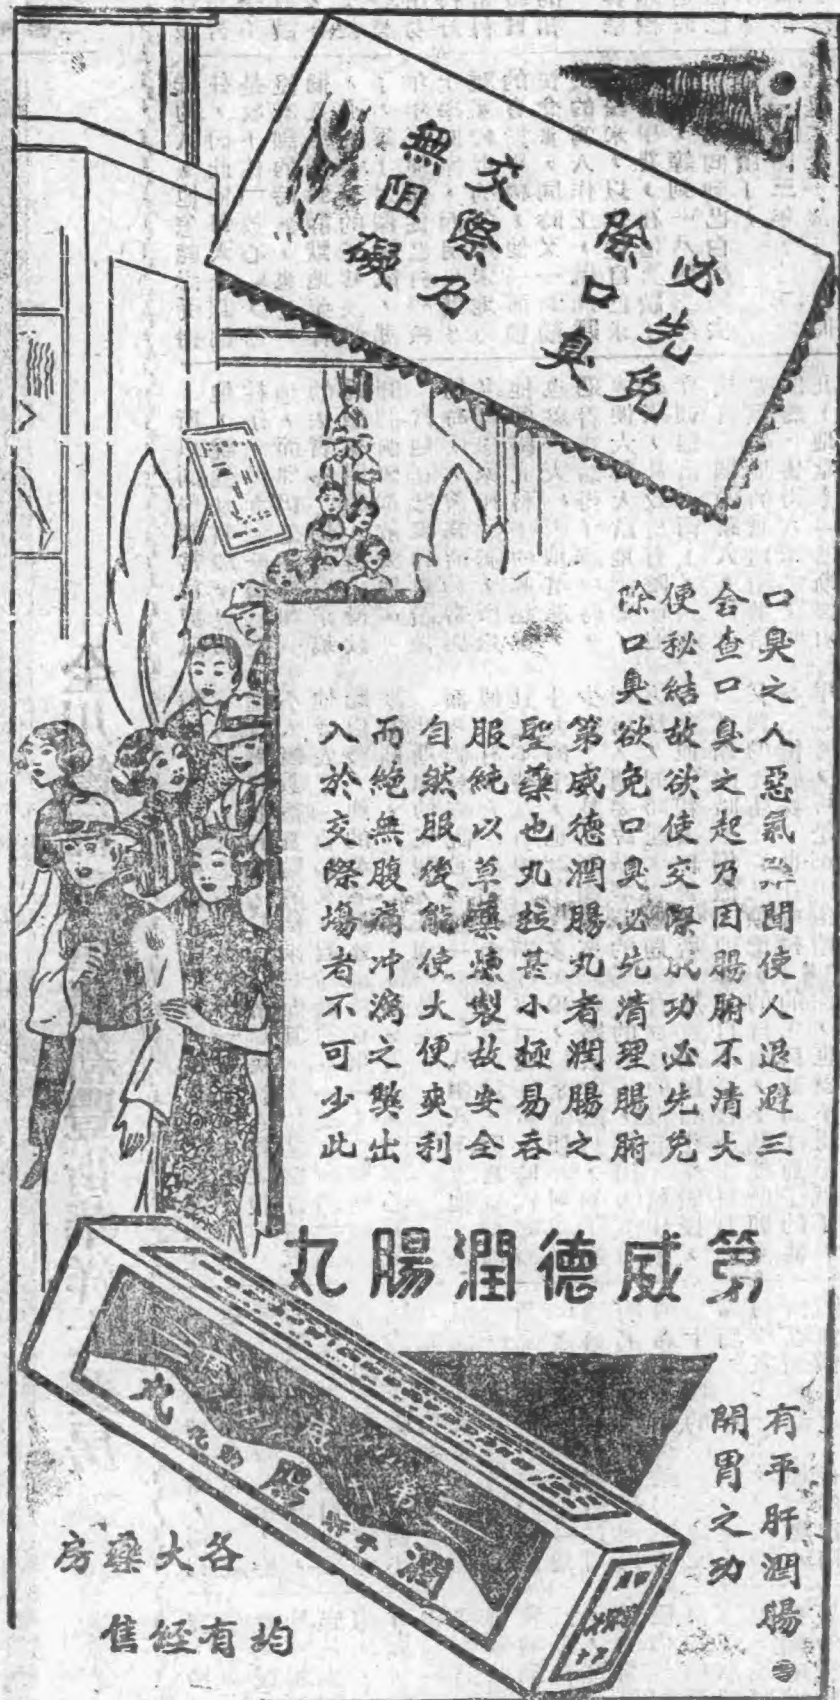 必先免
除口臭
交際乃
無阻礙
口臭之人惡氣難聞使人退避三
舍查口臭之起乃因腸腑不清大
便秘結故欲使交際成功必先免
除口臭欲免口臭必先清理腸腑
第威德潤腸丸者潤腸之
聖藥也丸粒甚小極易吞
服純以草藥煉製故安全
自然服後能使大便爽利
而絕無腹痛冲瀉之弊出
入於交際塲者不可少此
第威德潤腸丸
有平肝潤腸
開胃之功
潤腸丸
各大藥房
均有經售